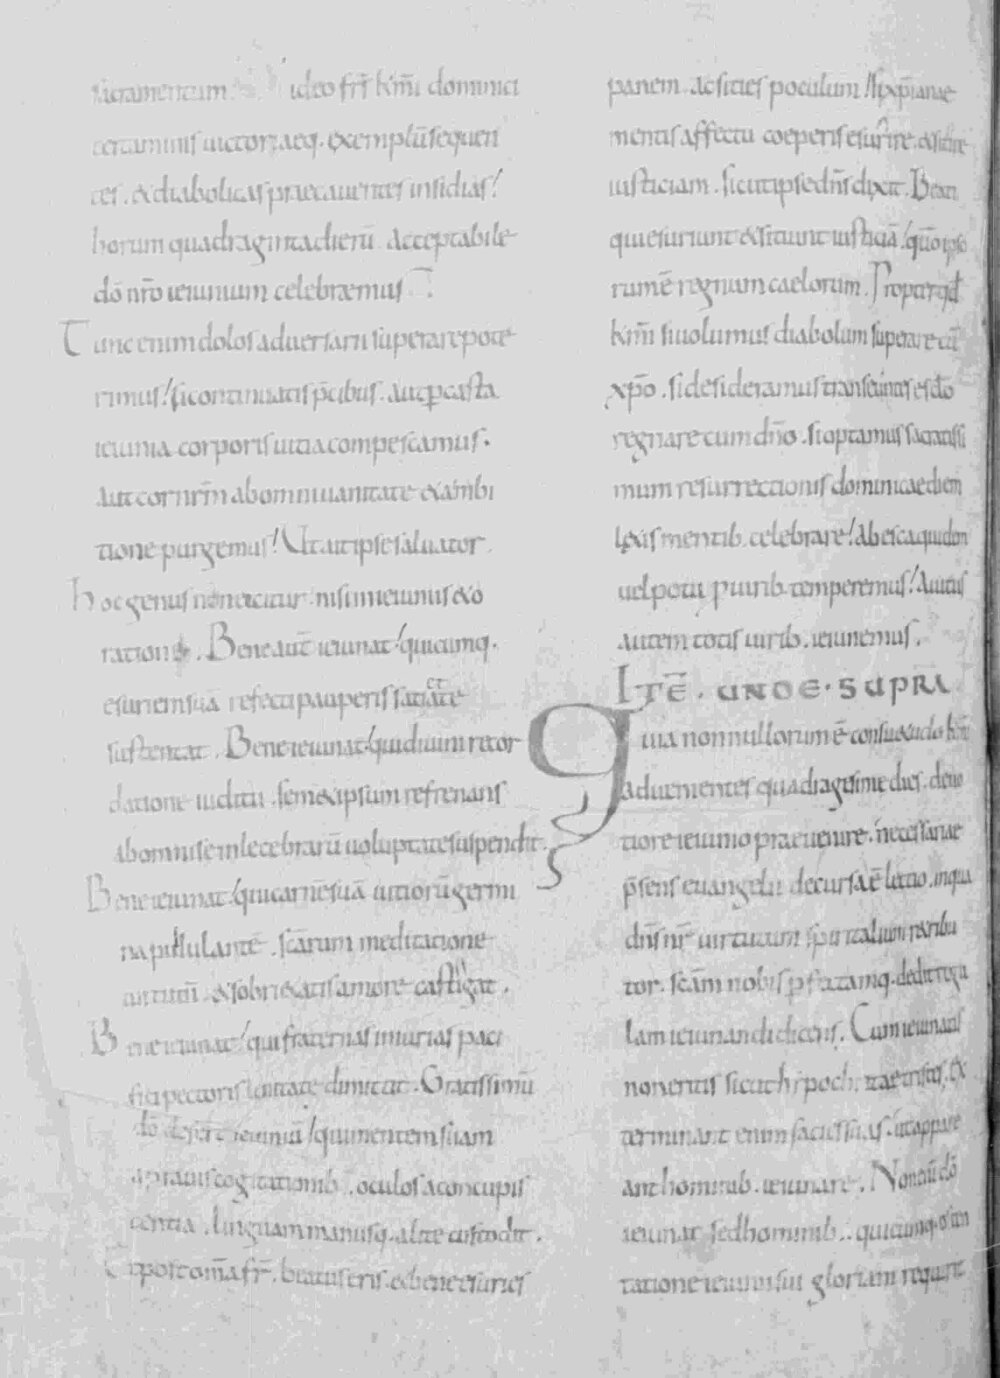 sacramentum ideo frs̄ km̄i dominici
certaminis uictoriaeq. exemplū sequen
tes. & diabolicas praecauentes insidias!
horum quadraginta dierū acceptabile
dō nr̄o ieiunium celebraemus.
Tunc enim dolos aduersarii superare pote
rimus! si continuatis p̄cibus. aut p casta
ieiunia corporis uitia compescamus.
Aut cor nr̄m ab omni uanitate & ambi
tione purgemus! Ut ait ipse saluator.
hoc genus non eicitur! nisi in ieiuniis & o
ration. Bene aut̄ ieiunat! quicumq.
esuriem suā refecti pauperis satiaetate
sustentat. Bene ieiunat! qui diuini retor
datione iudicii. sem&ipsum refrenans
ab omnis e inlecebrarū uoluptate suspendit.
Bene ieiunat! qui carnē suā uitiorū germi
na pullulantē. sc̄arum meditatione
uirtutū & sobri&atis amore castigat.
Bene ieiunat! qui fraternas iniurias paci
fici pectoris lenitate dimittit. Gratissimū
dō defert ieiuniū! qui mentem suam
a prauis cogitationib. oculos a concupis
centia. linguam manusq. a lite custodit.
Tripost om̄a fr̄. beatus eris. & bene esuries
panem. ac sities poculum! si xp̄ianae
mentis affectu coeperis esurire. & sitire
iusticiam. sicut ipse dn̄s dixit. Beati
qui esuriunt & sitiunt iusticiā! quō ipso
rum ē regnum caelorum. Propter qd
km̄i si uolumus diabolum superare cū
xpō. si desideramus transeuntes es do
regnare cum dn̄o. si optamus sacratissi
mum resurrectionis dominicae diem
l&is mentib. celebrare! Ab esca quidem
uel potu p uirib. temperemus! A uitiis
autem totis uirib. ieiunemus.
ITĒ. UNDE. SUPRA
Quia nonnullorum ē consuetudo km̄i
aduenientes quadragesime dies. deuo
tiore ieiunio praeuenire. necessariae
p̄sens euangelii decursa ē lectio. in qua
dn̄s nr̄ uirtutum spiritalium retribu
tor. sc̄am nobis p f&amq. dedit regu
lam ieiunandi dicens. Cum ieiunatis
non eritis sicut hipoch. itae tristes. Ex
terminant enim facies suas. ut appare
ant hominib. ieiunare. Non cū dō
ieiunat. sed hominib.. quicumq. osten
tatione ieiunii sui gloriam requirit